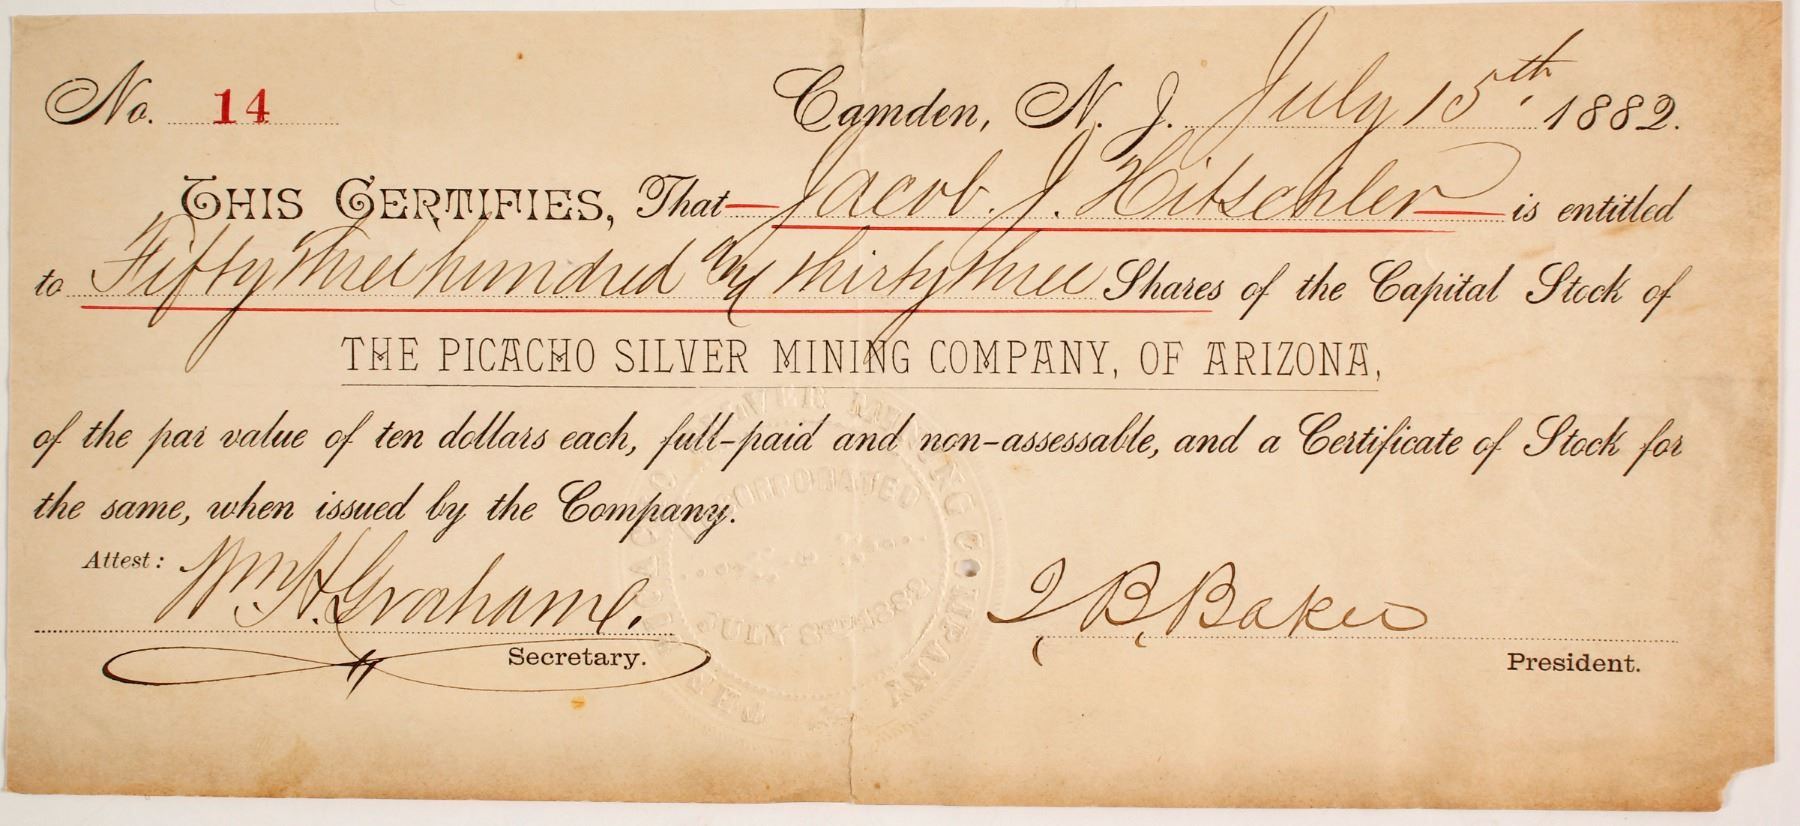 No. 14
Camden, N. J. July 15th, 1882.
THIS CERTIFIES, That Jacob. J. Hitschler is entitled
to Fifty three hundred and thirty three Shares of the Capital Stock of
THE PICACHO SILVER MINING COMPANY, OF ARIZONA,
of the par value of ten dollars each, full-paid and non-assessable, and a Certificate of Stock for
the same, when issued by the Company.
Attest: Wm H. Grahame,
Secretary.
I, B, Baker
President.
THE PICACHO SILVER MINING COMPANY
INCORPORATED
JULY 3RD 1882